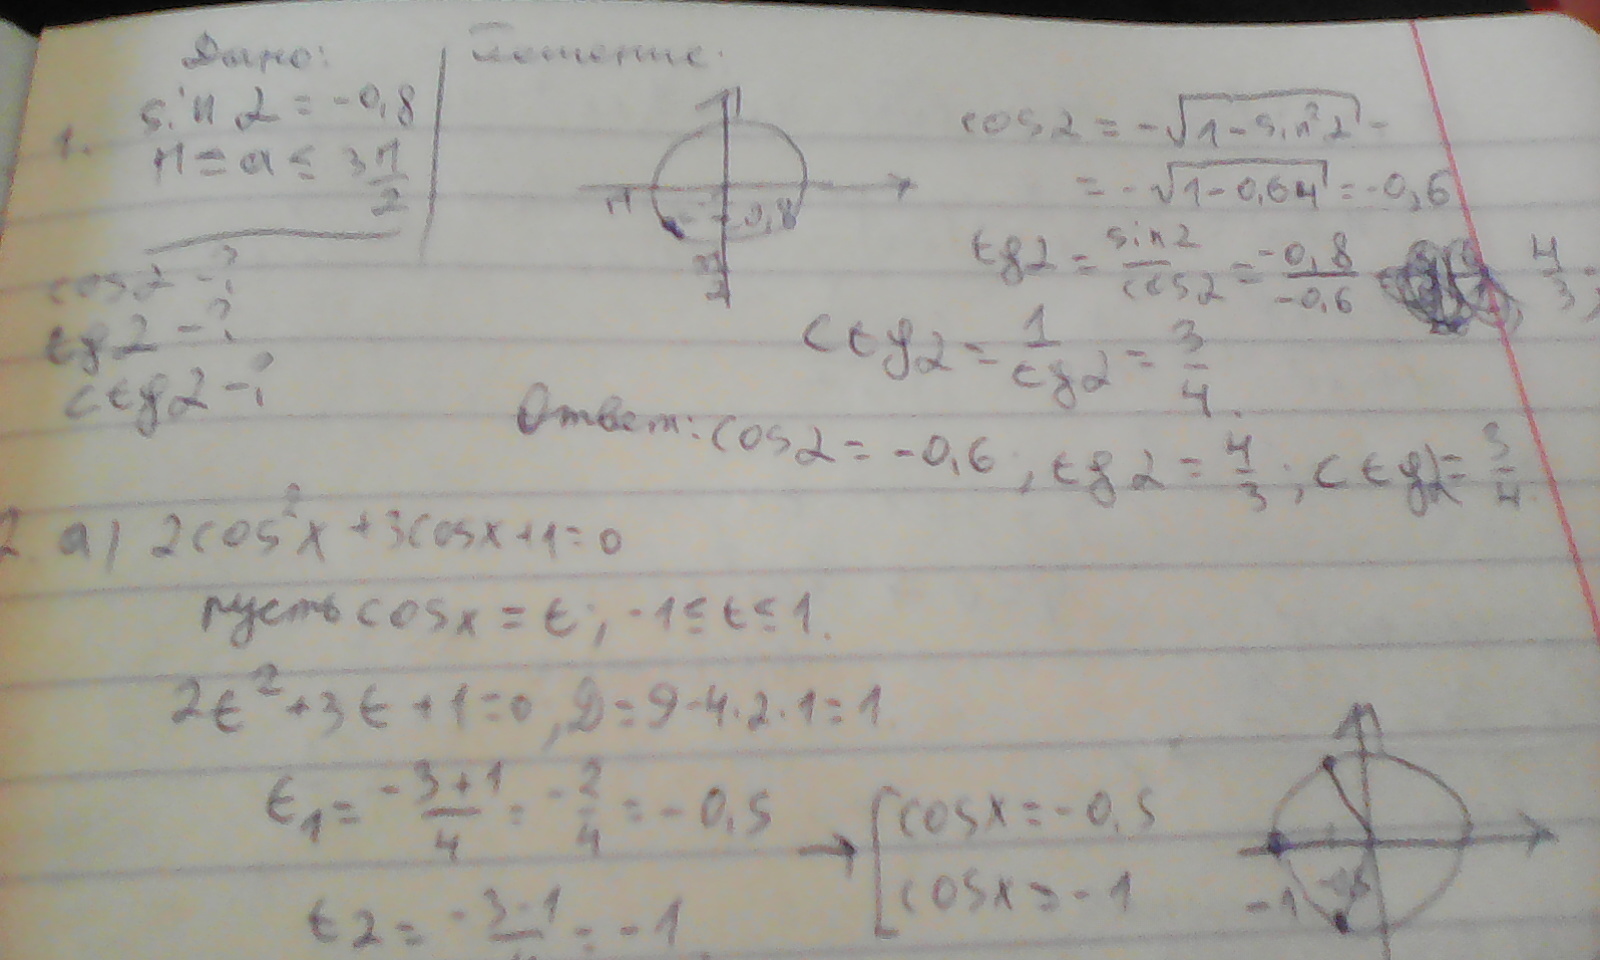 Дано:
1. sin α = -0,8
π ≤ α ≤ 3π/2
cos α - ?
tg α - ?
ctg α - ?
Решение:
π
-0,8
cos α = -√(1 - sin²α) =
= -√(1-0,64) = -0,6
tg α = sin α / cos α = -0,8 / -0,6 = 4/3;
ctg α = 1 / tg α = 3/4.
Ответ: cos α = -0,6; tg α = 4/3; ctg α = 3/4.
2. а) 2cos²x + 3cosx + 1 = 0
пусть cosx = t; -1 ≤ t ≤ 1.
2t² + 3t + 1 = 0, D = 9-4·2·1 = 1
t₁ = (-3+1)/4 = -2/4 = -0,5
t2 = (-3-1)/4 = -1.
→ [ cosx = -0,5
cosx = -1
-1 -0,5